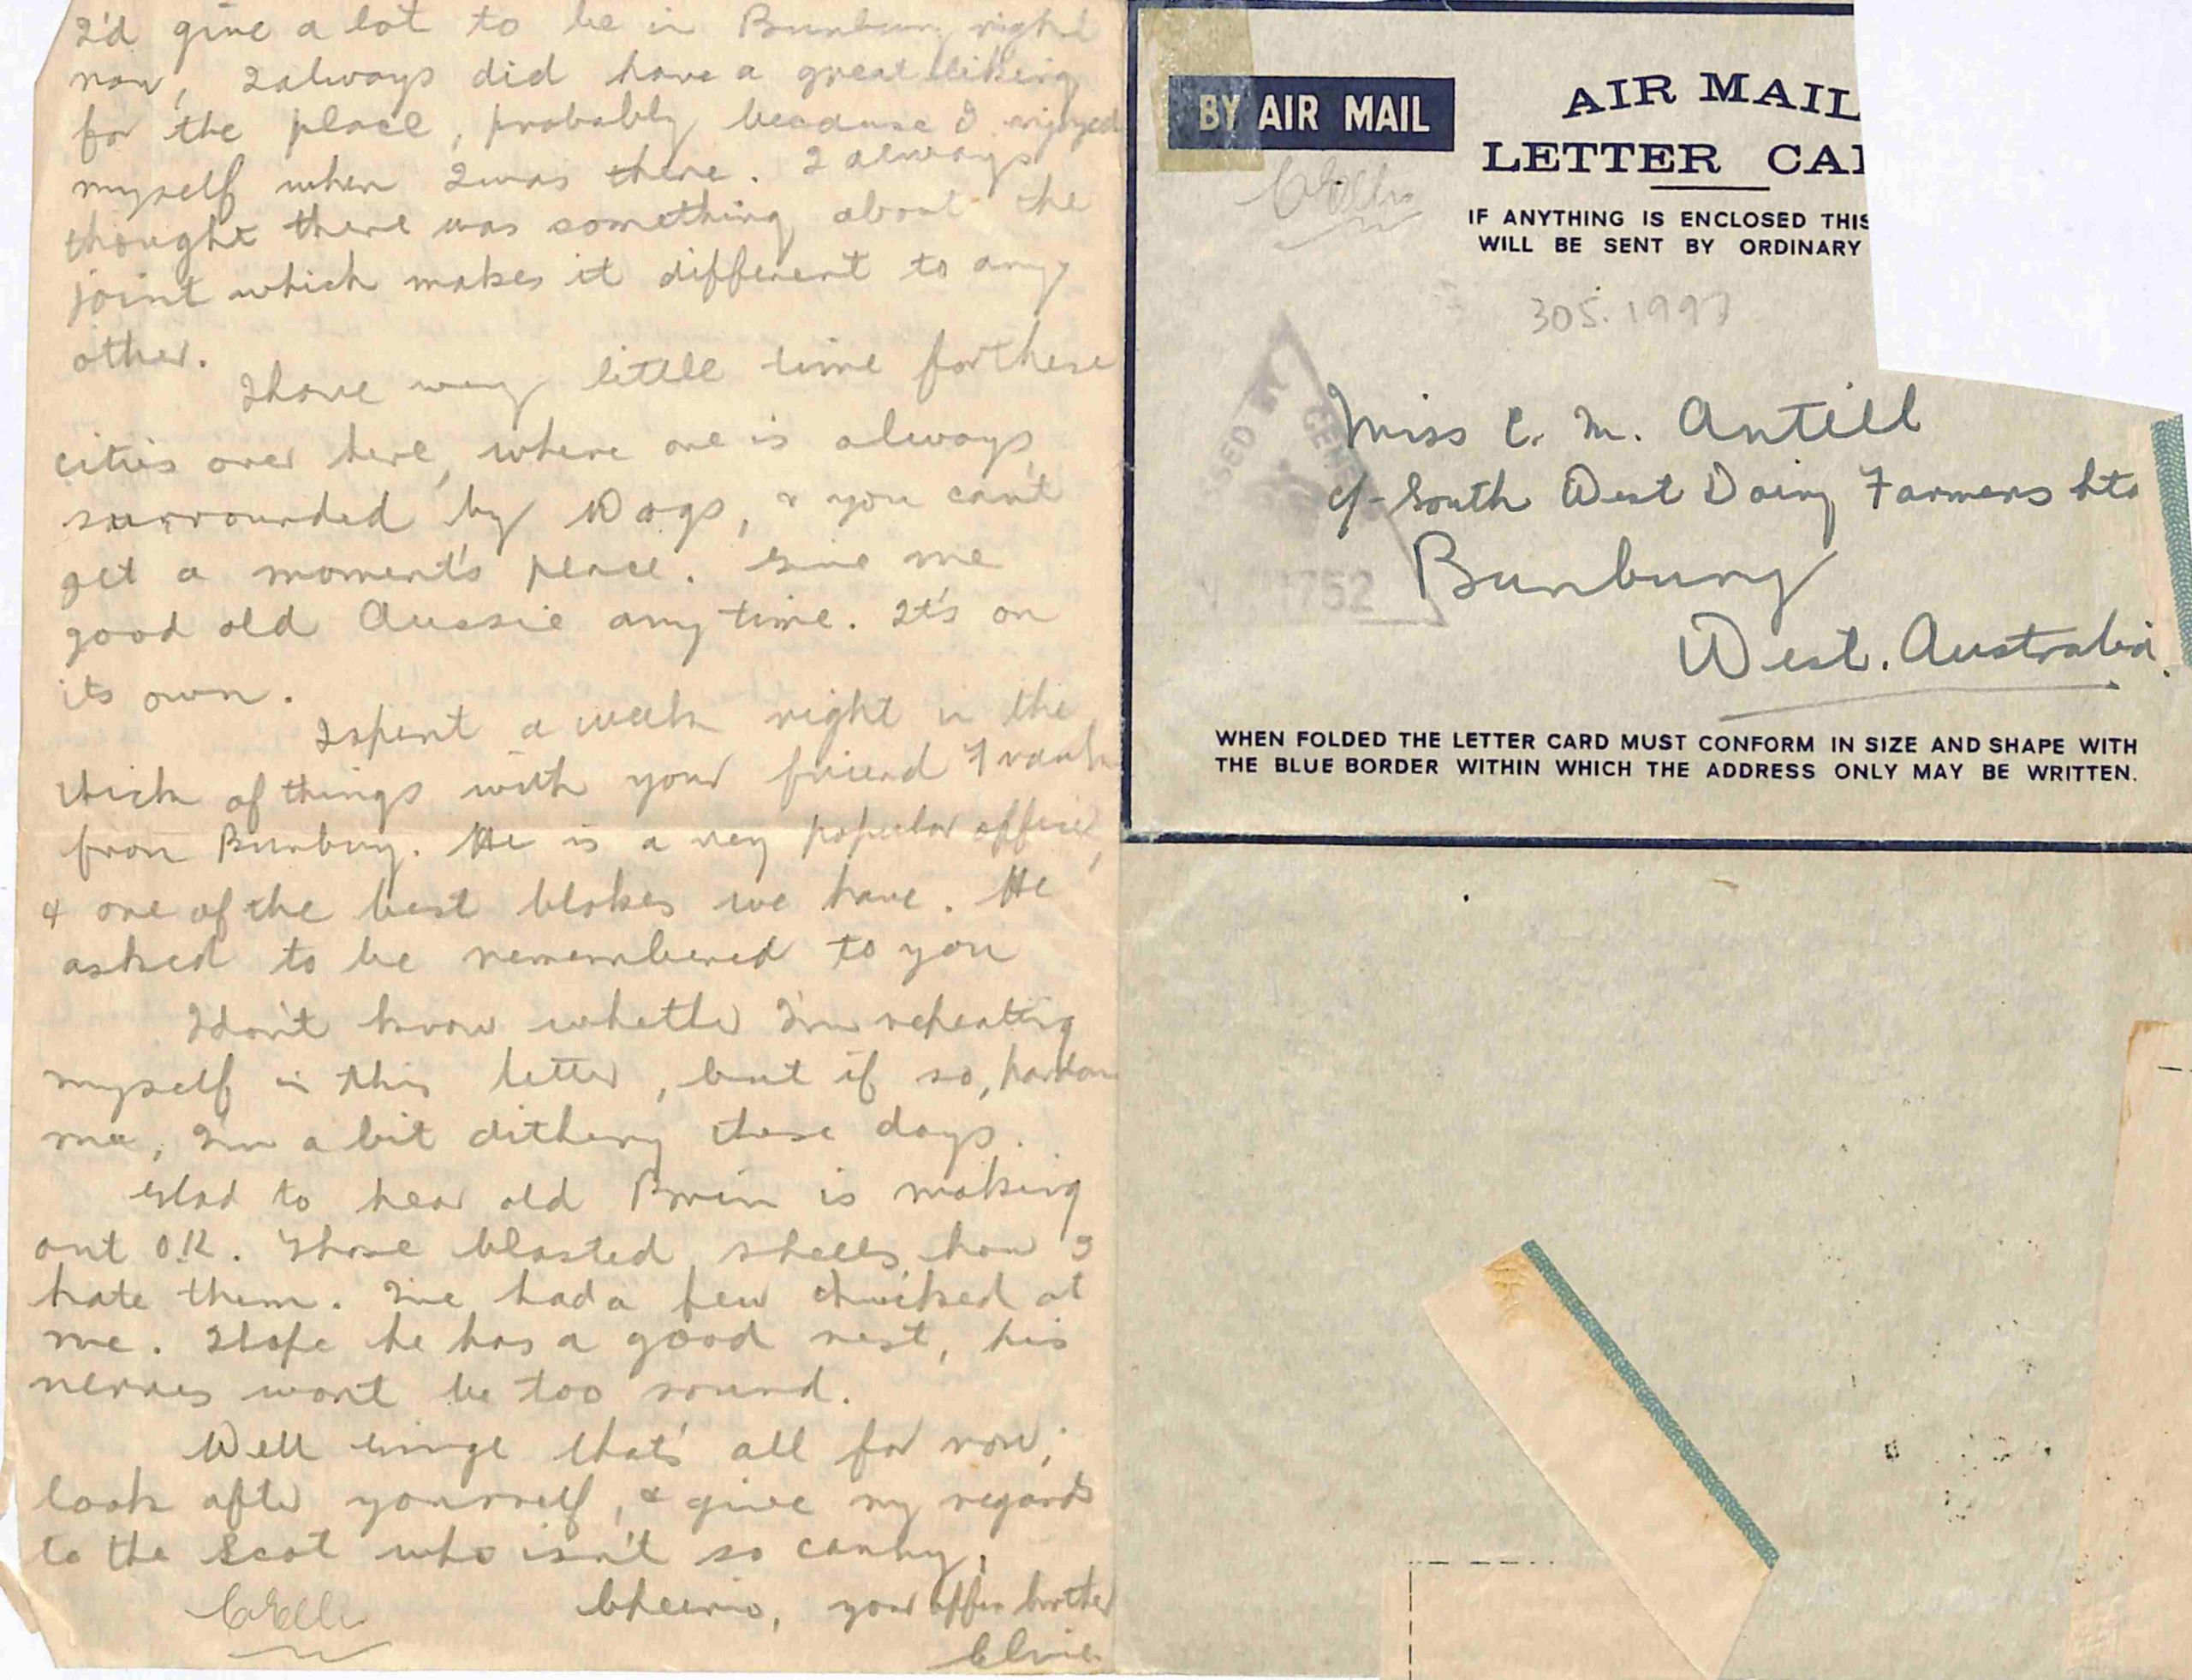 I'd give a lot to be in Bunbury right
now, I always did have a great liking
for the place, probably because I enjoyed
myself when I was there. I always
thought there was something about the
joint which makes it different to any
other.
I have very little time for these
cities over here, where one is always
surrounded by Wogs, & you can't
get a moment's peace. Give me
good old Aussie any time. It's on
its own.
I spent a week right in the
thick of things with your friend Frank
from Bunbury. He is a very popular officer,
& one of the best blokes we have. He
asked to be remembered to you
I don't know whether I'm repeating
myself in this letter, but if so, pardon
me, I'm a bit dithery these days.
Glad to hear old is making
out O.K. Those blasted shells, how I
hate them. I've had a few chucked at
me. I hope he has a good rest, his
nerves wont be too sound.
Well that's all for now;
look after yourself, & give my regards
to the Scot who isn't so canny.
Cheerio, your affec brother
Clive
BY AIR MAIL
AIR MAIL
LETTER CA
IF ANYTHING IS ENCLOSED THIS
WILL BE SENT BY ORDINARY
305.1997
SED BY CEN
1752
Miss C. M. Antill
c/- South West Dairy Farmers Ltd
Bunbury
West. Australia.
WHEN FOLDED THE LETTER CARD MUST CONFORM IN SIZE AND SHAPE WITH
THE BLUE BORDER WITHIN WHICH THE ADDRESS ONLY MAY BE WRITTEN.